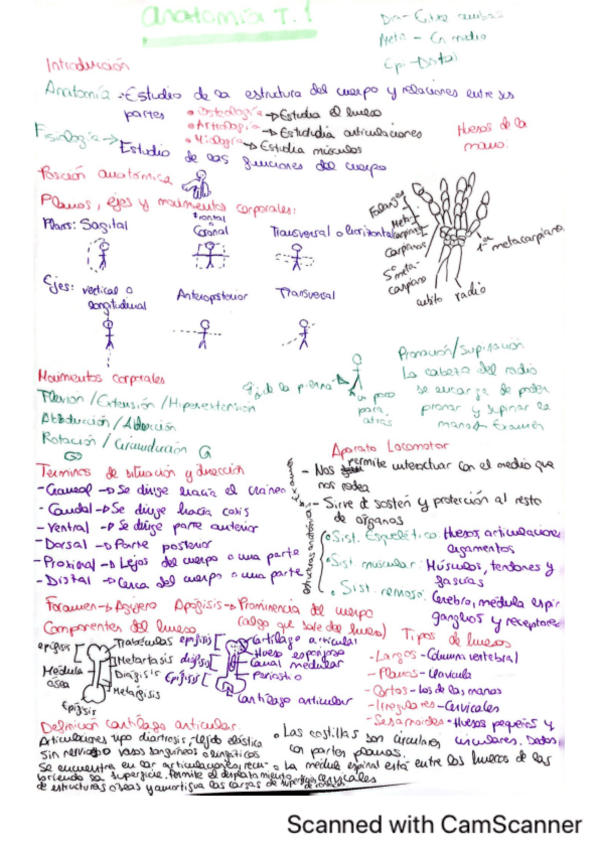 Anatomía T. 1
Dia- Entre ambas
Meta - En medio
Epi - Distal
Introducción
Anatomía → Estudio de la estructura del cuerpo y relaciones entre sus
partes
• Osteología → Estudia el hueso
• Artrología → Estudia articulaciones
• Miología → Estudia músculos
Fisiología → Estudio de las funciones del cuerpo
Huesos de la
mano:
Posición anatómica
Planos, ejes y movimientos corporales:
Plans: Sagital
frontal
o
Coronal
Transversal o horizontal
Falanges
Meta-
carpianos
Carpianos
5º meta-
carpiano
cubito radio
1er metacarpiano
Ejes: vertical o
longitudinal
Anteroposterior
Transversal
Movimientos corporales
Flexion / Extensión / Hiperextensión
Abducción / Adución
Rotación / Circunducción
Eje de la pierna
un poco
para
atras
Pronación/Supinación
La cabeza del radio
se encarga de poder
pronar y supinar la
mano → Examen
Terminos de situación y dirección
- Craneal → Se dirige hacia el craneo
- Caudal → Se dirige hacia coxis
- Ventral → Se dirige parte anterior
- Dorsal → Parte posterior
- Proximal → Lejos del cuerpo o una parte
- Distal → Cerca del cuerpo o una parte
Aparato Locomotor
- Nos permite interactuar con el medio que
nos rodea
- Sirve de sosten y protección al resto
de organos
• Sist. Esquelético: Huesos, articulaciones
Ligamentos
• Sist. muscular: Músculos, tendones y
fascias
• Sist. nervioso: Cerebro, médula espi-
ganglios y receptores
Foramen → Agujero Apofisis → Prominencia del cuerpo
(algo que sale del hueso)
Componentes del hueso
epifisis
Medula
osea
Trabéculas
Metafisis
Diafisis
Metafisis
Epifisis
epifisis
diáfisis
Epifisis
Cartilago articular
Hueso esponjoso
Canal medular
Periostio
Cartilago articular
Tipos de huesos
- Largos - Columna vertebral
- Planos - Clavicula
- Cortos - los de las manos
- Irregulares - Cervicales
- Sesamoideos - Huesos pequeños y
circulares. Dedos
Definición cartilago articular
Articulaciones tipo diartrosis, tejido elástico
Sin nervios o vasos sanguíneos o linfaticos
Se encuentra en las articulaciones, recu-
briendo su superficie. Permite el desplazamiento
de estructuras oseas y amortigua las cargas de superficies
• Las costillas son circulares
con partes planas.
• La medula espinal está entre los huecos de las
cervicales
Scanned with CamScanner